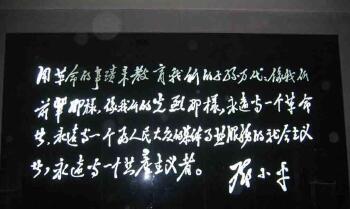 用革命的事迹来教育我们的子孙万代：像我们
前辈那样，像我们的先烈那样，永远当一个革命
者，永远当一个为人民大众的集体事业服务的社会主义
者，永远当一个共产主义者。 邓小平